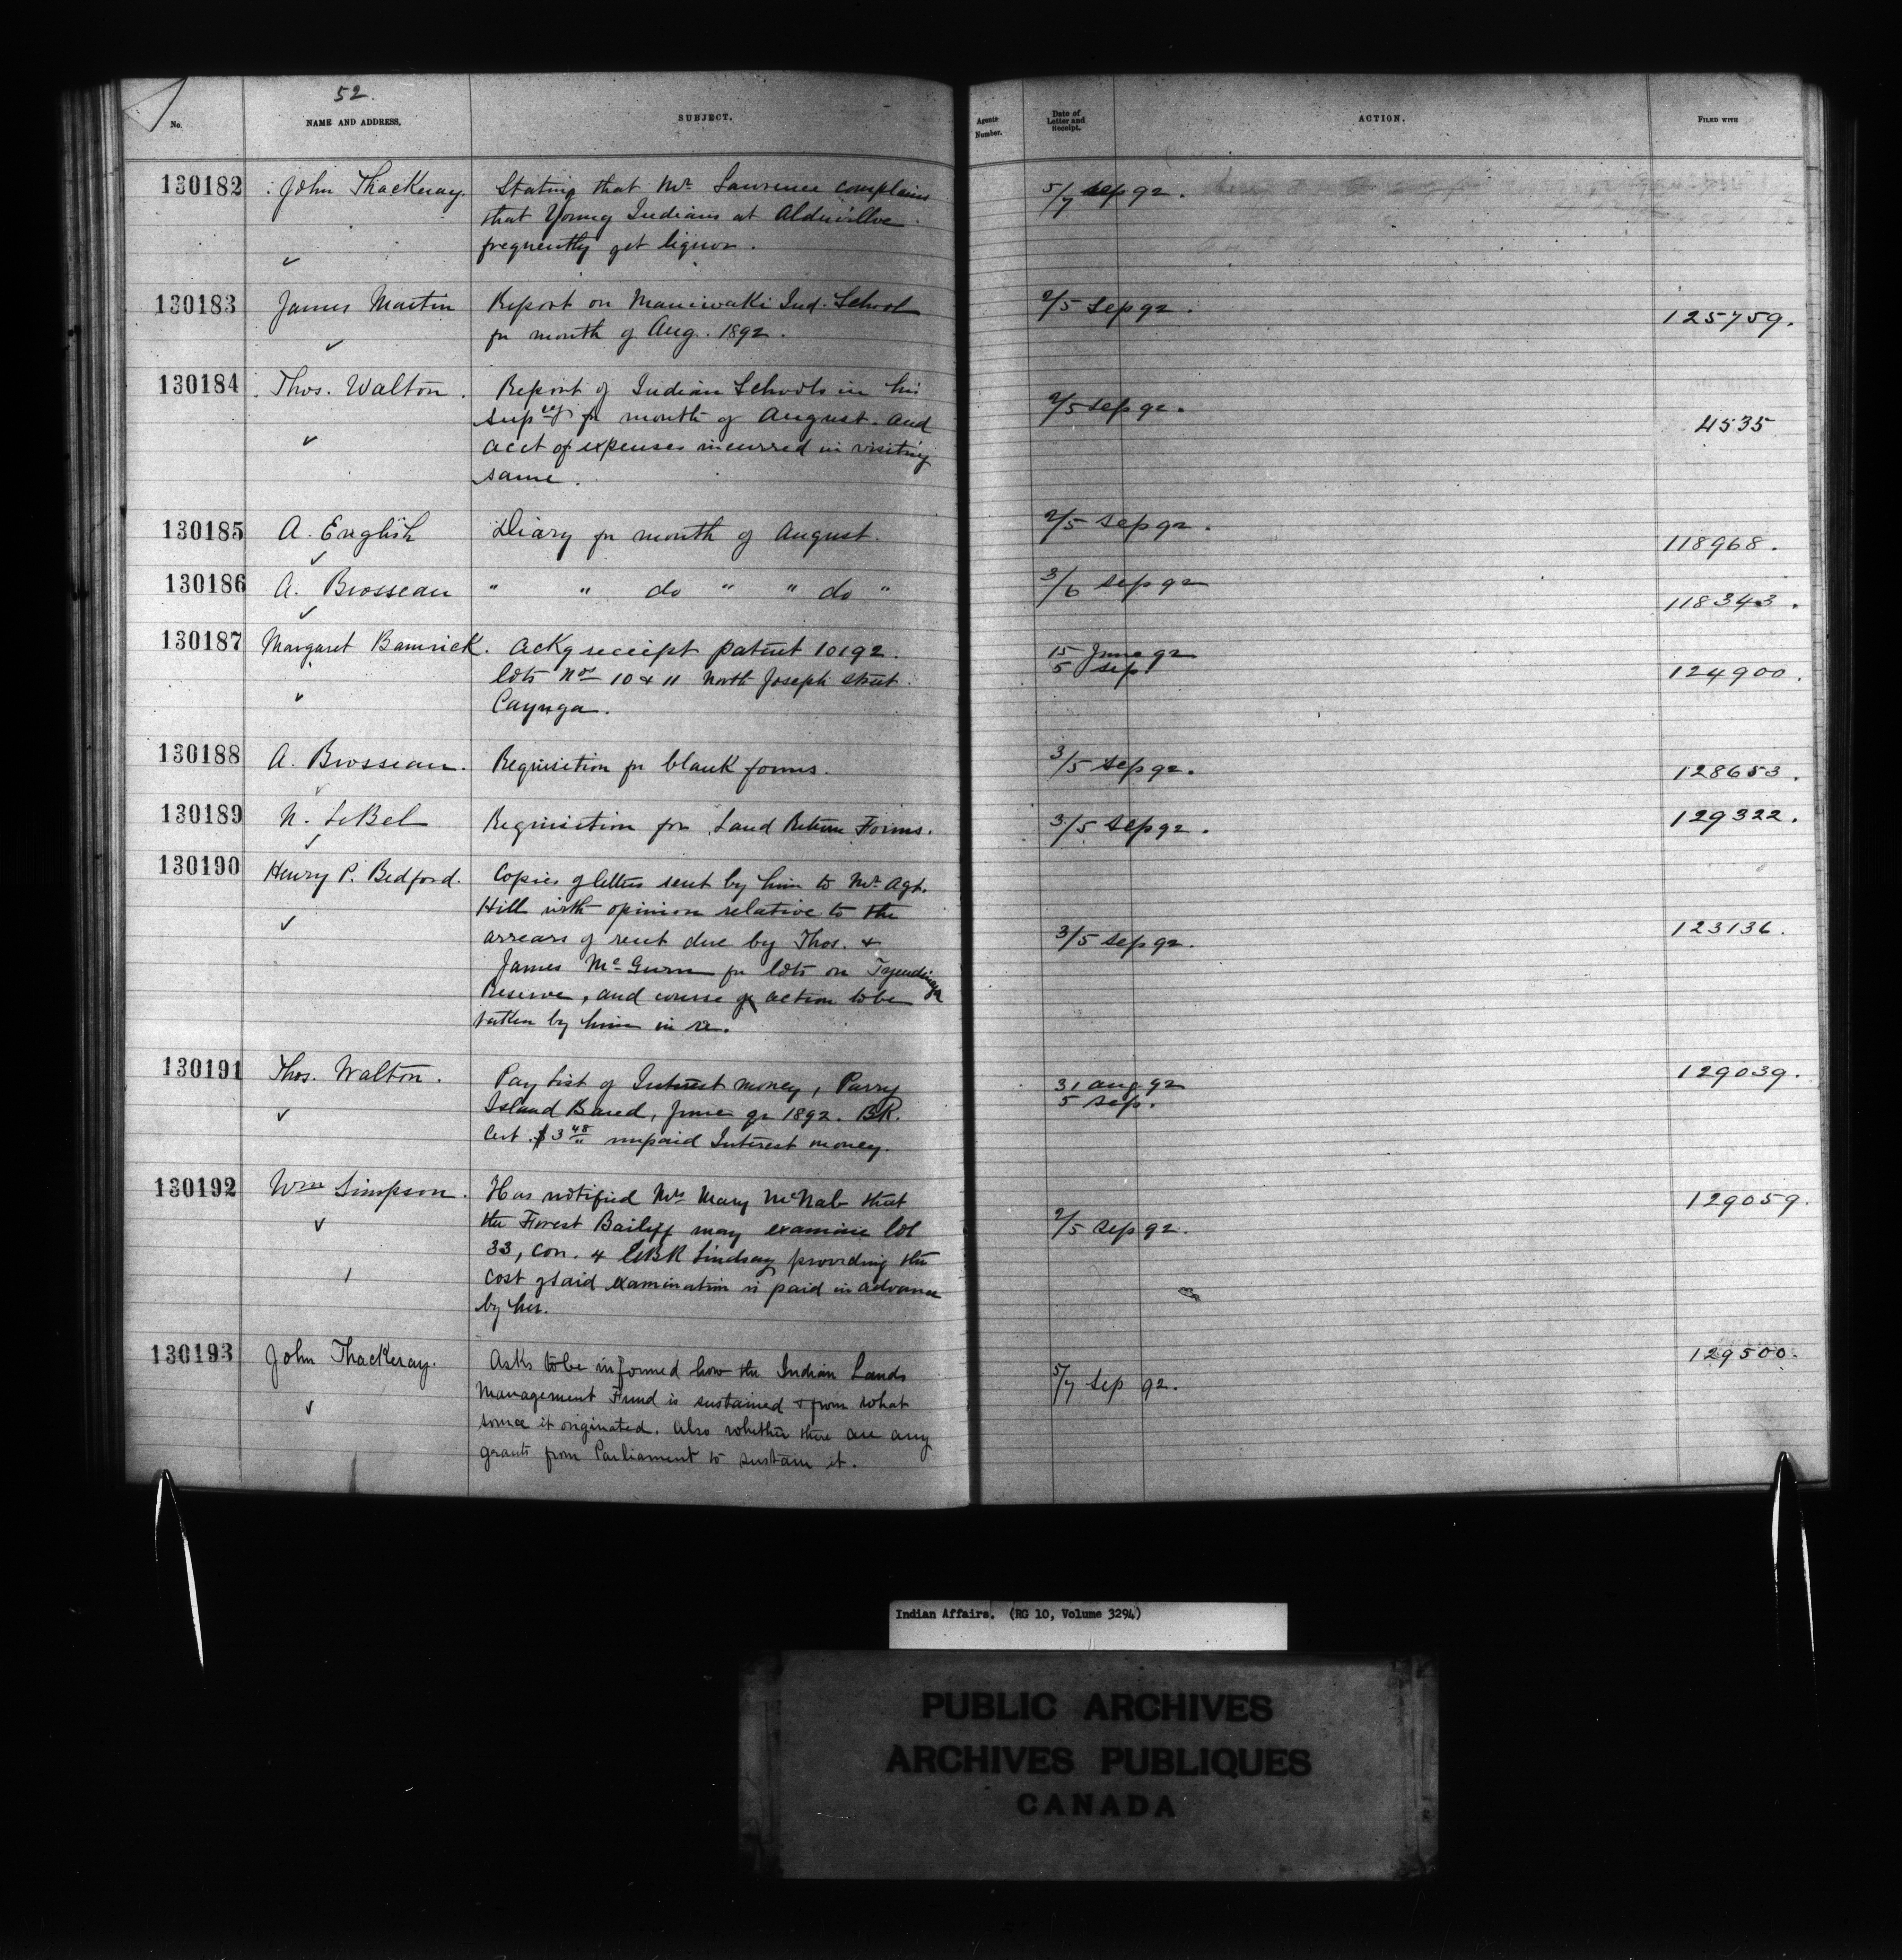 52.
No.
NAME AND ADDRESS.
SUBJECT.
Agents Number.
Date of Letter and Receipt.
ACTION.
FILED WITH
130182 John Thackeray. Stating that Mr Lawrence complains 5/7 Sep 92.
that Young Indians at Aldwillve
frequently get liquor.
130183 James Martin Report on Maniwaki Ind. School 2/5 Sep 92. 125759.
for month of Aug. 1892.
130184 Thos. Walton. Report of Indian Schools in his 2/5 Sep 92. 4535
Supcy for month of August. and
acct of expenses incurred in visiting
same.
130185 A. English Diary for month of August. 2/5 Sep 92. 118968.
130186 A. Brosseau " " do " " do " 3/6 Sep 92 118343.
130187 Margaret Bamrick. Ackg receipt patent 10192. 15 June 92 124900.
lots Nos 10 & 11 North Joseph street. 5 Sep.
Cayuga.
130188 A. Brosseau. Requisition for blank forms. 3/5 Sep 92. 128653.
130189 N. LeBel Requisition for Land Return Forms. 3/5 Sep 92. 129322.
130190 Henry P. Bedford. Copies of letters sent by him to Mr Agt.
Hill with opinion relative to the 123136.
arrears of rent due by Thos. & 3/5 Sep 92.
James McGurn for lots on Tyendinaga
Reserve, and course of action to be
taken by him in re.
130191 Thos. Walton. Pay List of Interest money, Parry 31 Aug 92 129039.
Island Band, June qr 1892. BK. 5 Sep.
Cert. $3 48 unpaid Interest money.
130192 Wm Simpson. Has notified Mrs Mary McNab that 129059.
the Forest Bailiff may examine lot 2/5 Sep 92.
33, Con. 4 EBR Lindsay providing the
cost of said examination is paid in advance
by her.
130193 John Thackeray. Asks to be informed how the Indian Lands 5/7 Sep 92. 129500.
Management Fund is sustained & from what
source it originated. Also whether there are any
grants from Parliament to sustain it.
Indian Affairs. (RG 10, Volume 3294)
PUBLIC ARCHIVES
ARCHIVES PUBLIQUES
CANADA